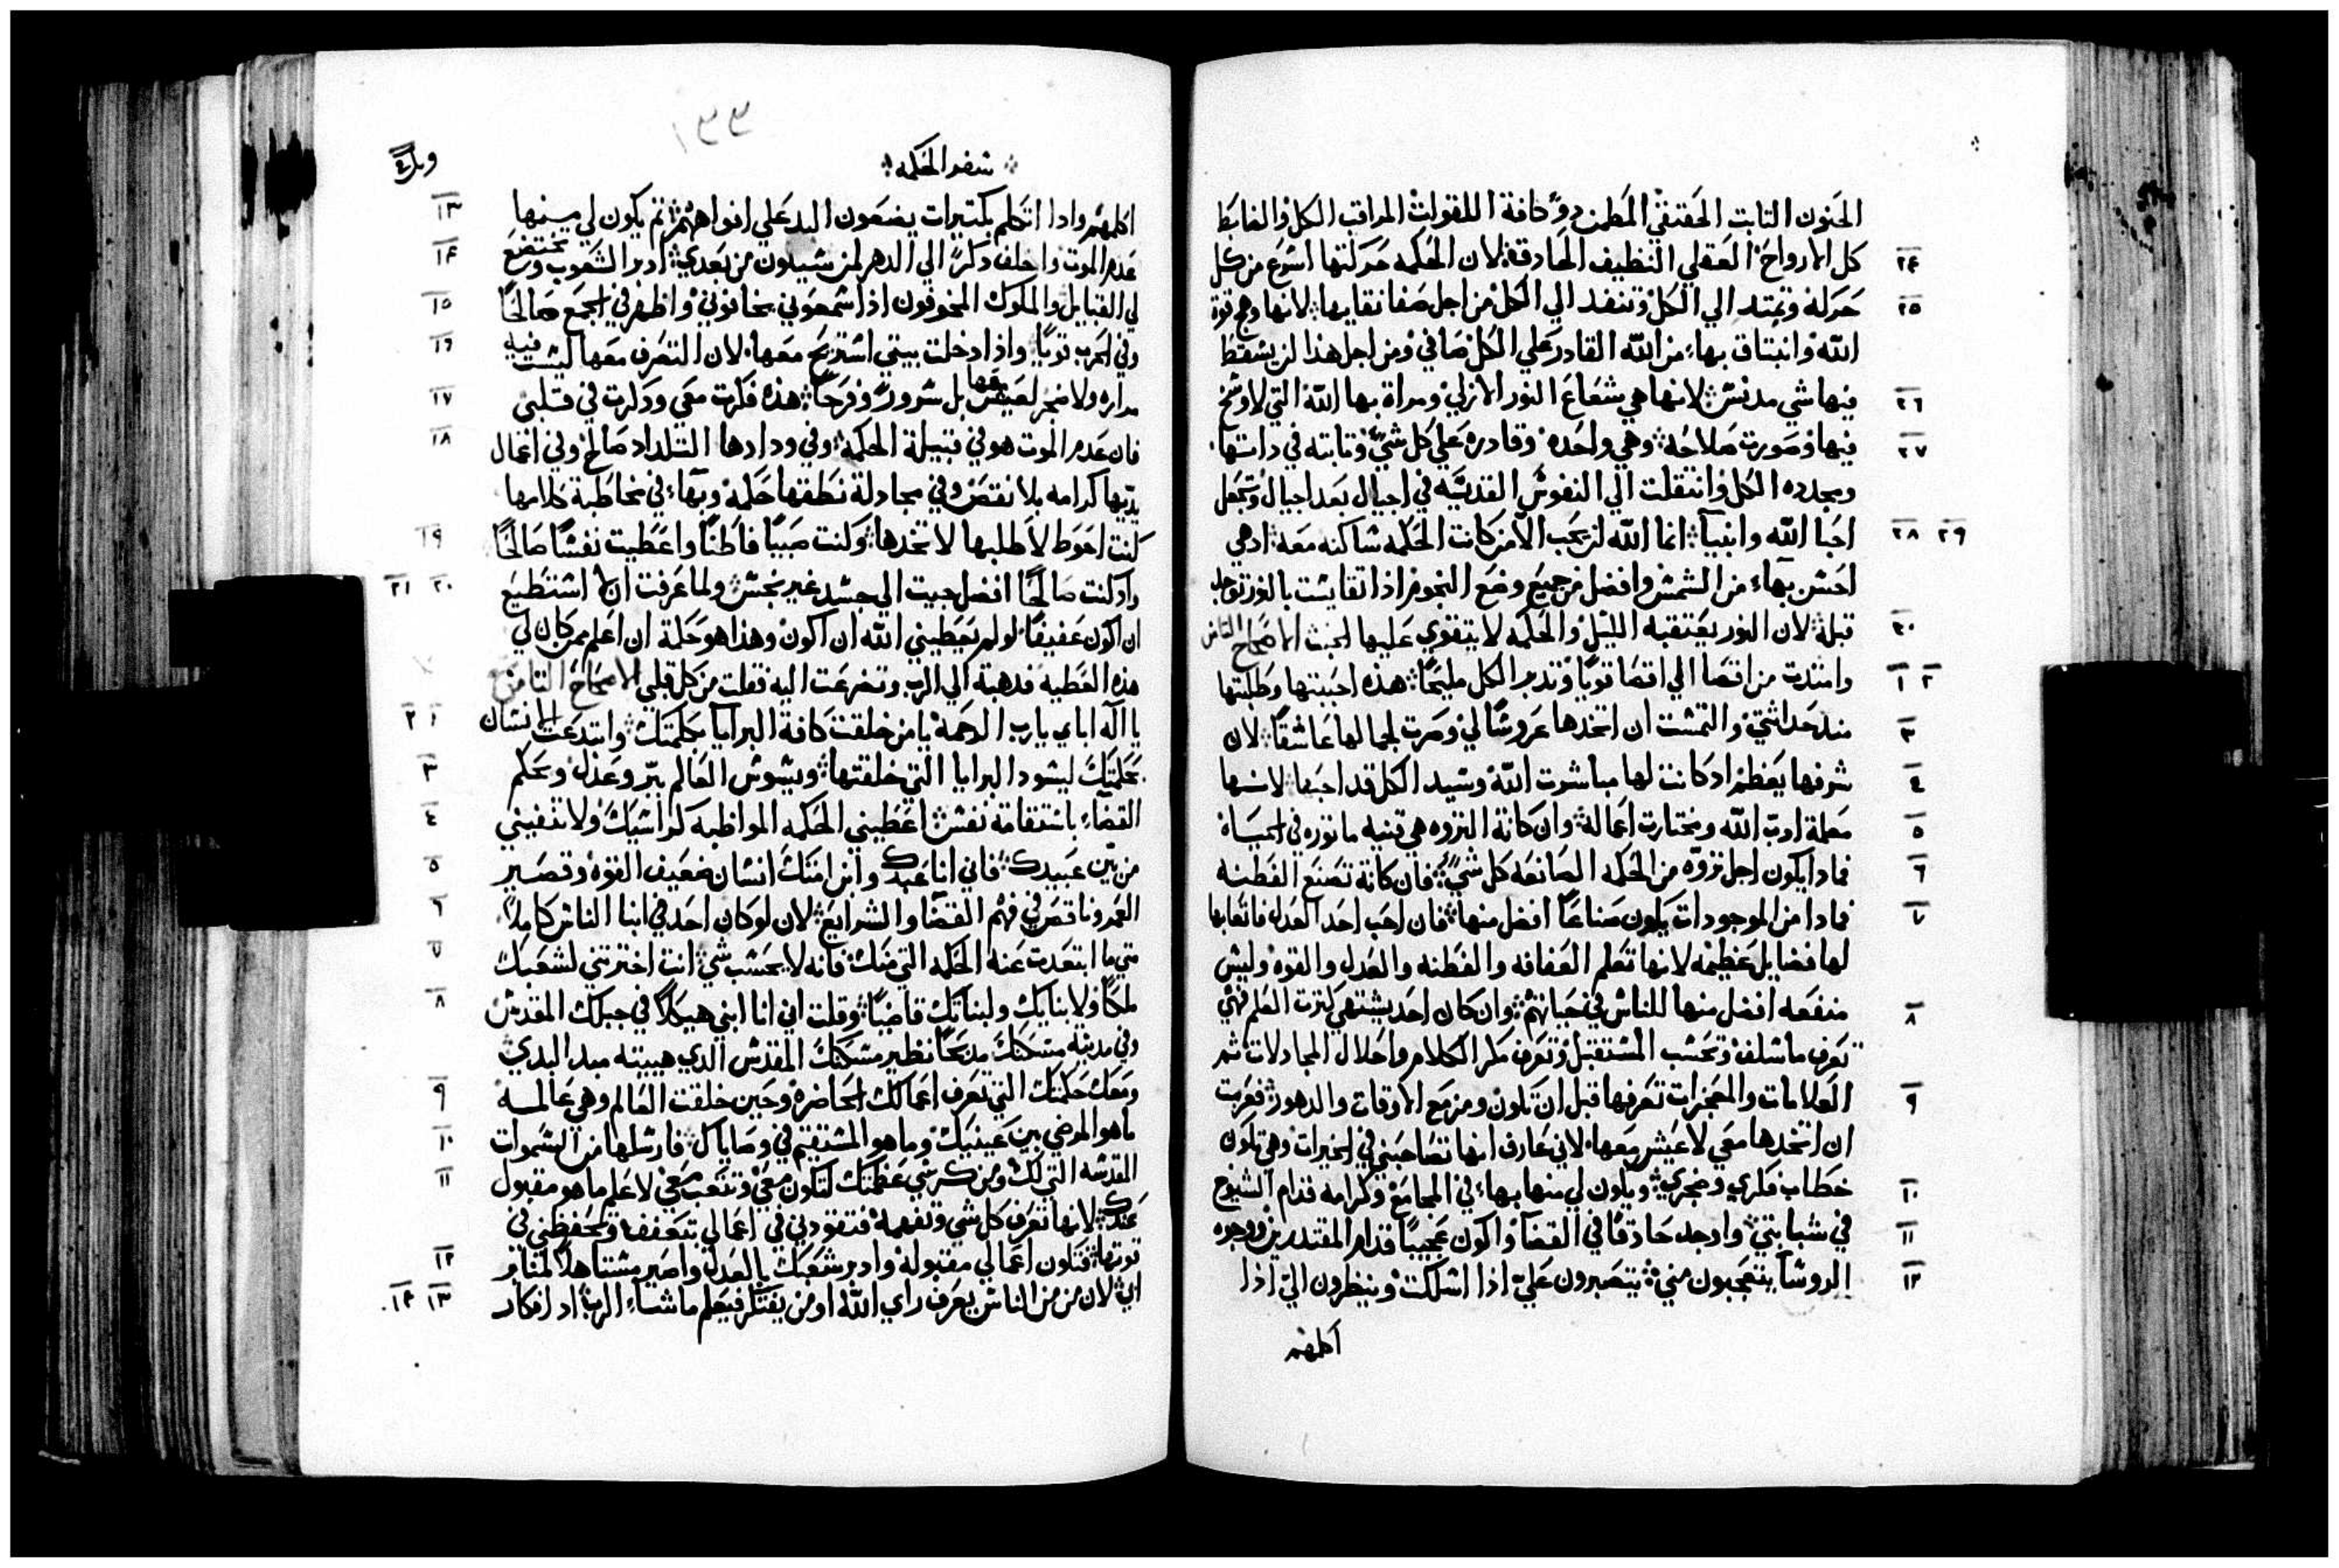 الحنون الثابت الحقيقي المطمن ذو كافة اللقوات المراقب الكل والضابط
كل الارواح العقلي النظيف الحادقة لان الحكمه حركتها اسرع من كل ٢٤
حركه وتمتد الي الكل وتنفد الي الكل من اجل صفا نقايها لانها وهج قوة ٢٥
الله وانبتاق بهاء من الله القادر علي الكل صافي ومن اجل هذا لن يسقط
فيها شي مدنس لانها هي شعاع النور الازلي ومراة بها الله التي لا وسخ ٢٦
فيها وصورت صلاحه وهي واحده وقادره علي كل شي وتابته في داتها ٢٧
ومجدده الكل وانتقلت الي النفوس القدسيه في اجيال بعد اجيال وتجعل
احبا الله وانبيآ انما الله لن يحب الا من كانت الحكمه ساكنه معه اد هي ٢٨ ٢٩
احسن بهاء من الشمس وافضل من جميع وضع النجوم اذا تقايست بالنور توجد
قبله لان النور يعتقبه الليل والحكمه لا يتقوي عليها الخبث الاصحاح الثامن ٣٠
وامتدت من اقصا الي اقصا قويا وتدبر الكل مليحا هذه احببتها وطلبتها ١ ٢
مند حداثتي والتمست ان اتخدها عروسا لي وصرت لجمالها عاشقا لان ٣
شرفها يعظم اد كانت لها مباشرت الله وسيد الكل قد احبها لانها ٤
معلمة ادب الله ومختارت اعماله وان كانة التروه هي قنيه ماتوره في الحياة ٥
فمادا يكون اجل تروه من الحكمه الصانعه كل شي فان كانة تصنع الفطنه ٦
فمادا من الموجودات يكون صناعا افضل منها فان احب احد العدل فاتعابها ٧
لها فضايل عظيمه لانها تعلم العفافه والفطنه والعدل والقوه وليس
منفعه افضل منها للناس في حياتهم وان كان احد يشتهي كترت العلم فهي ٨
تعرف ما سلف وتحسب المستقبل وتعرف مكر الكلام واحلال المجادلات ثم
العلامات والمعجزات تعرفها قبل ان تكون ومزمع الاوقات والدهور فعزمت ٩
ان اتخدها معي لاعيش معها لاني عارف انها تصاحبني في الخيرات وهي تكون
خطاب فكري وضجري ويكون لي منها بهاء في المجامع وكرامه قدام الشيوخ ١٠
في شبابتي واوجد حادقا في القضآ واكون عجيبا قدام المقتدرين ووجوه ١١
الروسآ يتعجبون مني يتصبرون علي اذا اسكت وينظرون الي اذا ١٢
اكلمهم
١٣٣
سفر الحكمه
اكلمهم واذا اتكلم بكتيرات يضعون اليد علي افواههم ثم يكون لي بسببها ١٣
عدم الموت واخلف ذكرا الي الدهر لمن سيكون من بعدي ادبر الشعوب وتختضع ١٤
لي القبايل والملوك المخوفون اذا سمعوني يخافوني واظهر في الجمع صالحا ١٥
وفي الحرب قويا واذا دخلت بيتي استريح معها لان التصرف معها ليست فيه ١٦
مراره ولا ضجر لعيشها بل سرور وفرحا هذه فكرت معي ودكرت في قلبي ١٧
فان عدم الموت هو في قبيلة الحكمه وفي ودادها التلداد صالح وفي اعمال ١٨
يديها كرامه بلا نقص وفي مجادلة نطقها حكمه وبهاء في مخاطبة كلامها
كنت احوط لاطلبها لاتخدها وكنت صبيا فاطنا واعطيت نفسا صالحا ١٩
واد كنت صالحا افضل جيت الي جسد غير نجس ولما عرفت ان لا استطيع ٢٠ ٢١
ان اكون عفيفا لو لم يعطيني الله ان اكون وهذا هو حكمة ان اعلم ممن كان لي
هذه العطيه فدهبة الي الرب وتضرعت اليه فقلت من كل قلبي الاصحاح التاسع
يا اله اباي يا رب الرحمه يا من خلقت كافة البرايا بكلمتك وابتدعت الانسان ١ ٢
بحكمتك ليسود البرايا التي خلقتها ويسوس العالم ببر وعدل ويحكم ٣
القضاء باستقامة نفس اعطيني الحكمه المواظبه كراسيك ولا تنفيني ٤
من بين عبيدك فاني انا عبدك وابن امتك انسان ضعيف القوه وقصير ٥
العمر وناقص في فهم القضا والشرايع لان لو كان احد في ابنا الناس كاملا ٦
متي ما ابتعدت عنه الحكمه التي منك فانه لا يحسب شي انت اخترتني لشعبك ٧
ملكا ولابنايك ولبناتك قاضيا وقلت اني انا ابني هيكلا في جبلك المقدس ٨
وفي مدينه مسكنك مدبحا نظير مسكنك المقدس الدي هييته مند البدي
ومعك حكمتك التي تعرف اعمالك الحاضره وحين خلقت العالم وهي عالمه ٩
ما هو المرضي بين عينيك وما هو المستقيم في وصاياك فارسلها من السموات ١٠
المقدسه التي لك ومن كرسي عظمتك لتكون معي وتتعب معي لاعلم ما هو مقبول ١١
عندك لانها تعرف كل شي وتفهمه فتقودني في اعمالي بتعفف وتحفظني في
قوتها فتكون اعمالي مقبوله وادبر شعبك بالعدل واصير مستاهلا لمنابر ١٢
ابي لان من من الناس يعرف راي الله او من يفتكر فيعلم ما شاء الرب اد افكار ١٣ ١٤